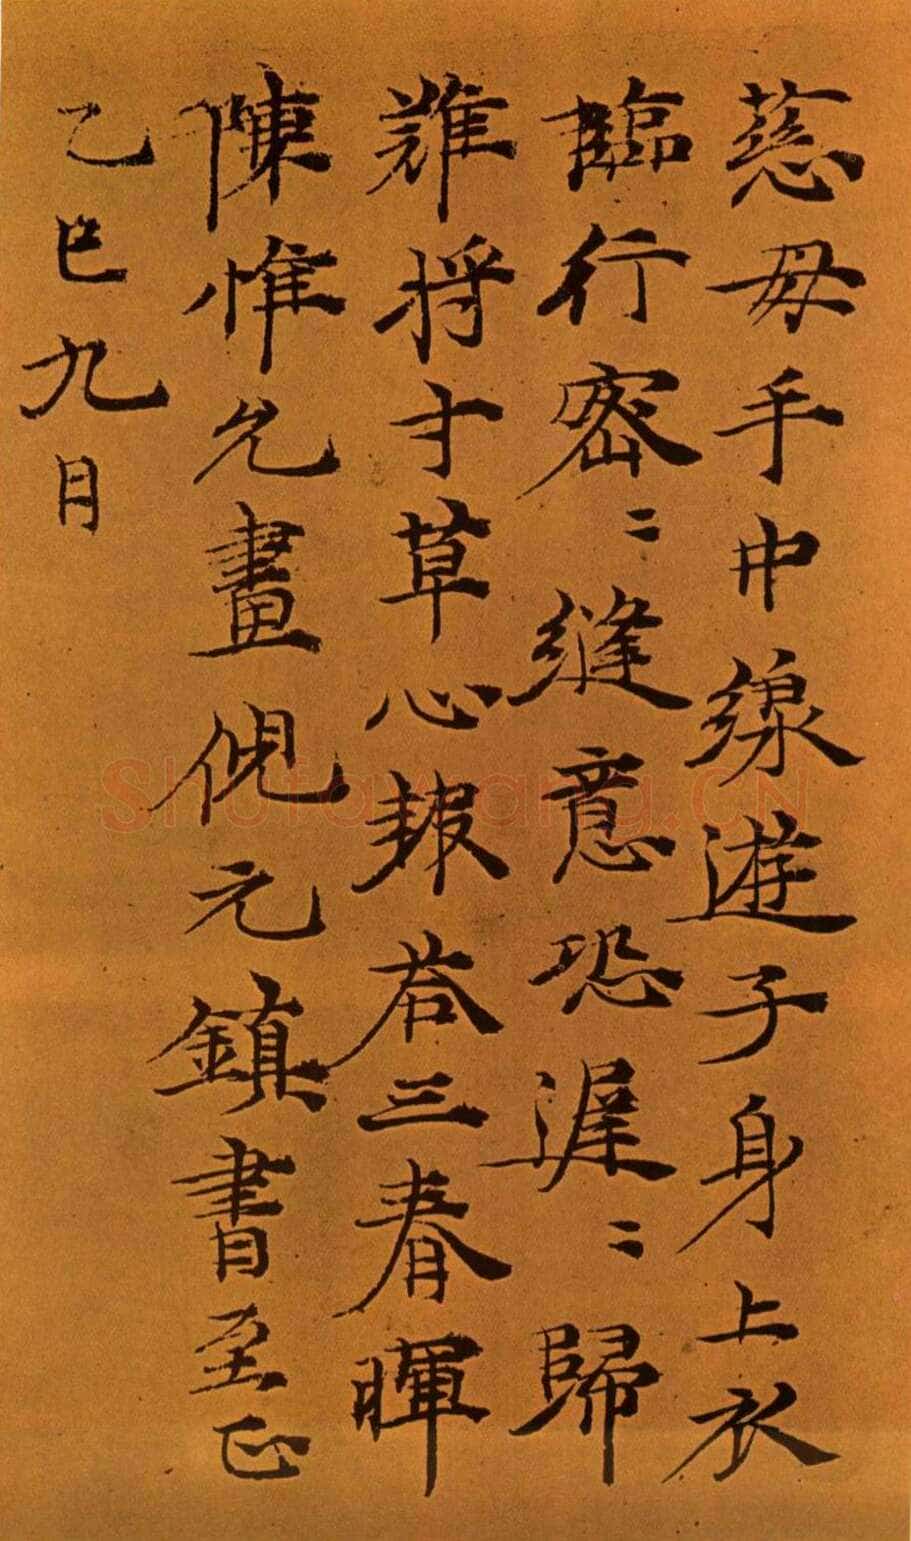 慈母手中線遊子身上衣
臨行密〻縫意恐遲〻歸
難將寸草心報荅三春暉
陳惟允畫倪元鎮書至正
乙巳九月
Shufawang.CN